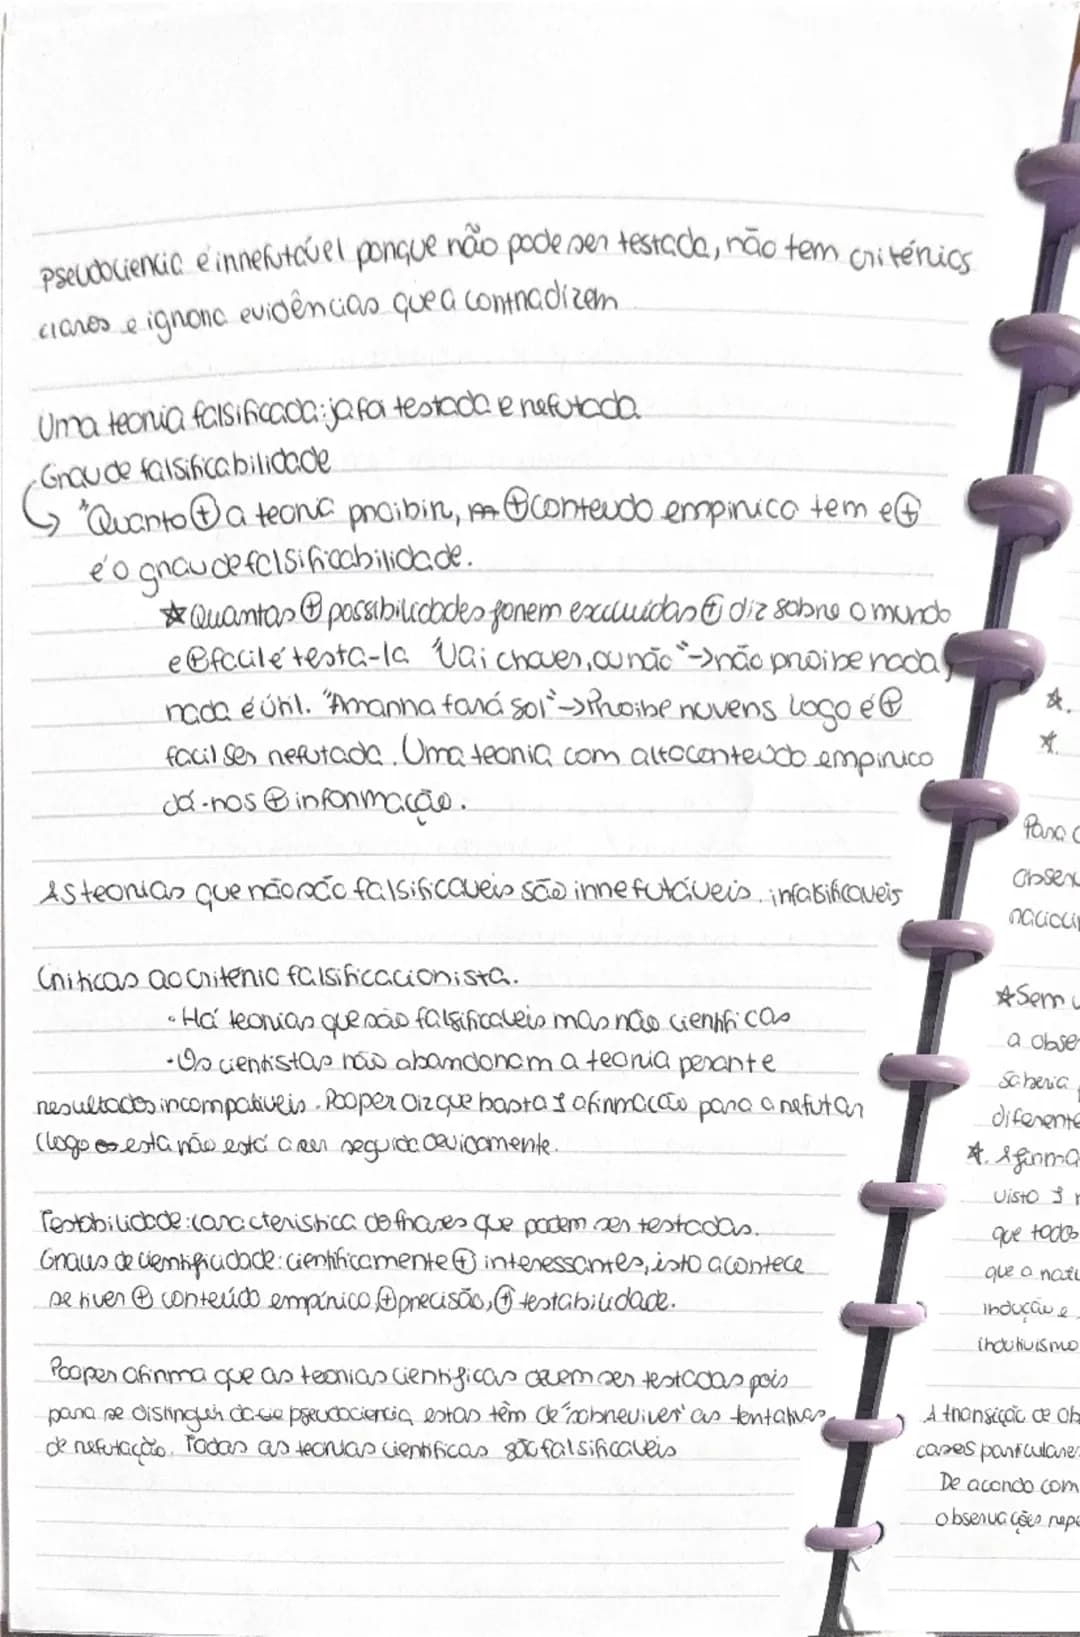 Pseudociencia é irrefutável porque não pode ser testada, não tem critérios
claros e ignora evidências que a contradizem
Uma teoria falsificada: ja foi testada e refutada
Grau de falsificabilidade
↳ "Quanto ⊕ a teoria proibir, ⊕ conteudo empirico tem e ⊕
é o grau de falsificabilidade.
☆ Quantas ⊕ possibilidades forem excluidas ⊕ diz sobre o mundo
e ⊕ facil é testa-la "Vai chover, ou não" -> não proibe nada,
nada é útil. "Amanha fará sol" -> Proibe nuvens logo é ⊕
facil ser refutada. Uma teoria com alto conteudo empirico
dá-nos ⊕ informação.
As teorias que não são falsificaveis são irrefutáveis. infalsificaveis
Criticas ao criterio falsificacionista.
• Há teorias que são falsificaveis mas não cientificas
• Os cientistas não abandonam a teoria perante
resultados incompativeis. Pooper diz que basta 1 afirmação para a refutar
(logo esta não está a ser seguida devidamente.
Testabilidade: caracteristica de frases que podem ser testadas.
Graus de cientificidade: cientificamente ⊕ interessantes, isto acontece
se tiver ⊕ conteúdo empírico, ⊕ precisão, ⊕ testabilidade.
Pooper afirma que as teorias cientificas devem ser testadas pois
para se distinguir da pseudociencia, estas têm de "sobreviver" as tentativas
de refutação. Todas as teorias cientificas são falsificaveis
☆.
☆.
Para
obser
☆ Sem
a obse
saberia
diferente
☆. Afirma
visto 1
que todos
que a natu
indução e
indutivismo
A transição de ob
casos particulare
De acordo com
observações repe